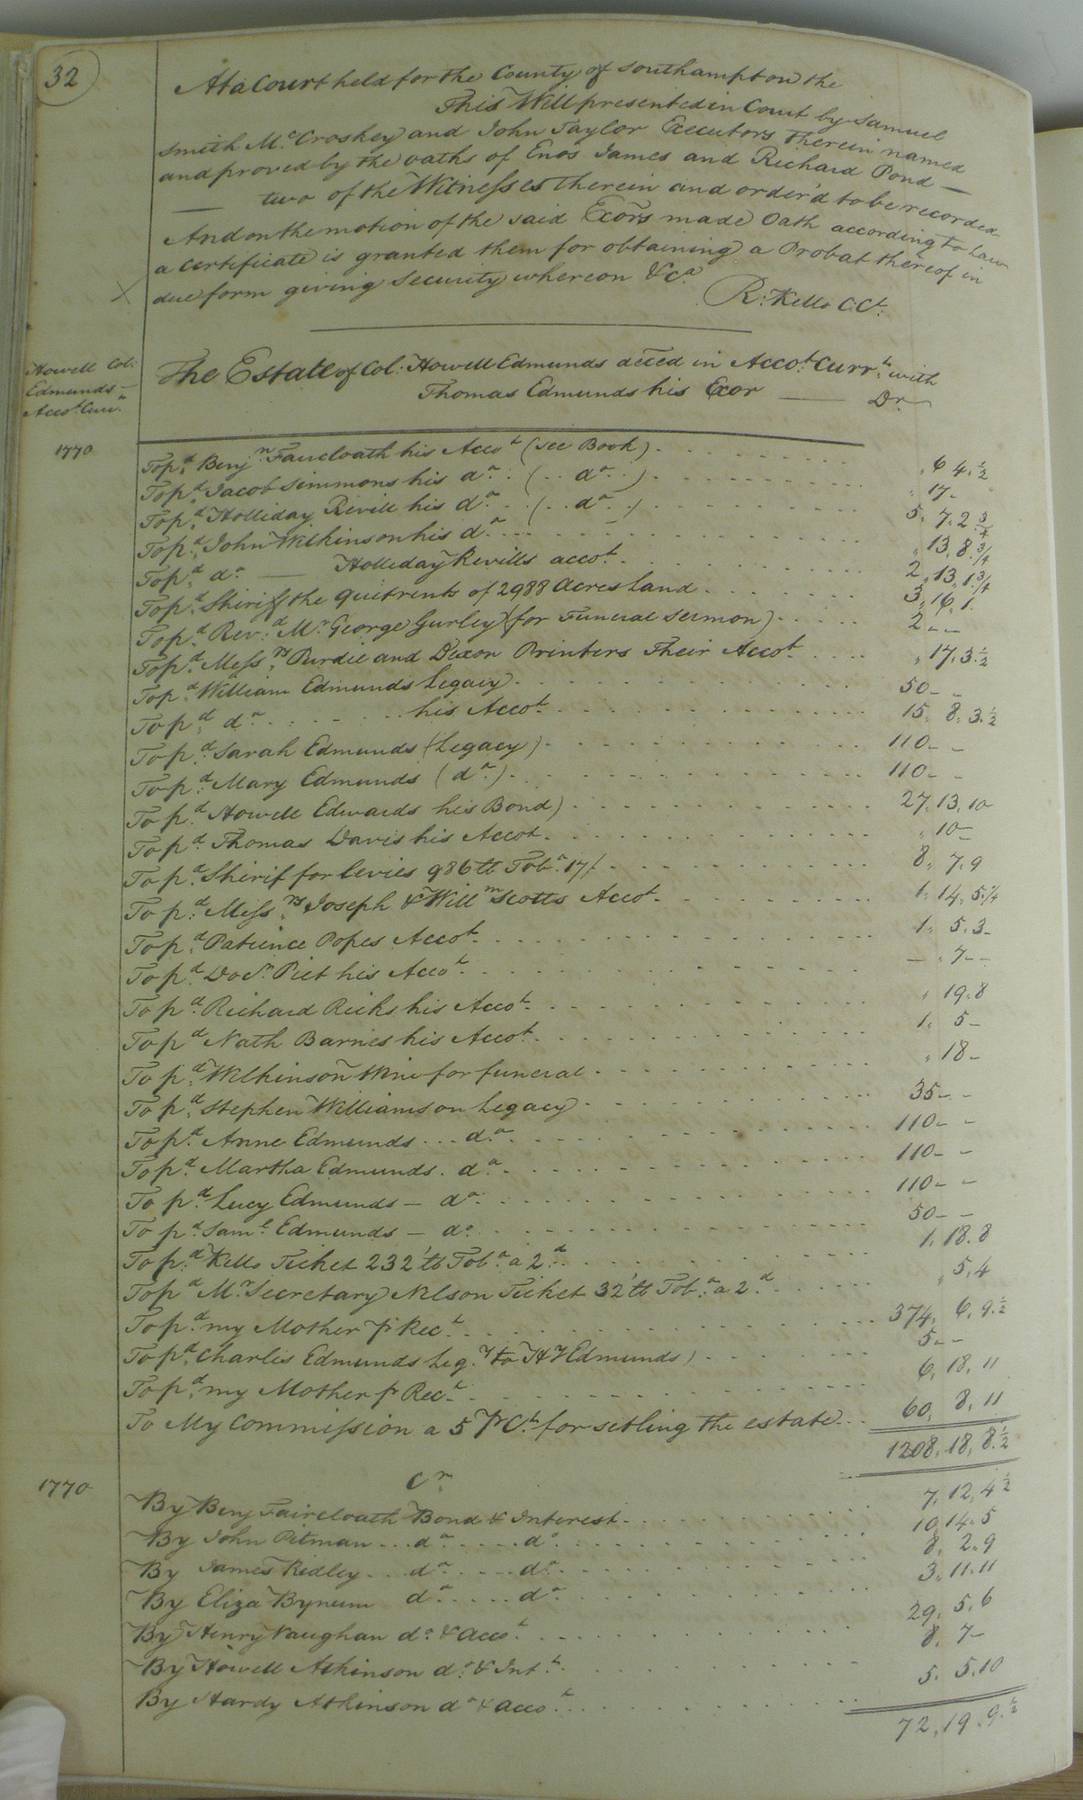 32
At a Court held for the County of Southampton the
This Will presented in Court by Samuel
Smith McCroskey and John Taylor Executors therein named
and proved by the oaths of Enos James and Richard Pond —
— two of the Witnesses therein and order'd to be recorded
And on the motion of the said Exors made Oath according to Law
a certificate is granted them for obtaining a Probat thereof in
due form giving Security whereon &ca
R: Kello C.Ct.
Howell Col:
Edmunds —
Accot Curr.
The Estate of Col. Howell Edmunds deced in Accot Currt. with
Thomas Edmunds his Exor — Dr.
1770
To pd. Benjn. Faircloath his Accot (see Book) . . . , 6 4.½
To pd. Jacob Simmons his do. (.. do. ..) . . . , 17 -
To pd. Holliday Revill his do. (.. do. ..) . . . 5. 7. 2 ¾
To pd. John Wilkinson his do. . . . , 13. 8. ¾
To pd. do. — Holliday Revills accot. . . . 2. 13. 1 ¾
To pd. Shiriff the quitrents of 2988 Acres Land . . . 3. 16. 1.
To pd. Revd. Mr. George Gurley (for Funeral Sermon) . . . 2 - -
To pd. Messrs. Purdie and Dixon Printers Their Accot. . . . , 17. 3.½
To pd. William Edmunds Legacy . . . 50 - -
To pd. do. . . . his Accot. . . . 15. 8. 3.½
To pd. Sarah Edmunds (Legacy) . . . 110 - -
To pd. Mary Edmunds (do.) . . . 110 - -
To pd. Howell Edwards his Bond) . . . 27. 13. 10
To pd. Thomas Davis his Accot. . . . , 10 -
To pd. Shirif for levies 986 tt Tobo. 17/ . . . 8. 7. 9
To pd. Messrs. Joseph & Willm Scotts Accot. . . . 1. 14. 5.¼
To pd. Patience Popes Accot. . . . 1. 5. 3 -
To pd. Docr. Piet his Accot. . . . - , 7 - -
To pd. Richard Ricks his Accot. . . . , 19. 8
To pd. Nath Barnes his Accot. . . . 1. 5 -
To pd. Wilkinson Wine for funeral . . . , 18 -
To pd. Stephen Williamson Legacy . . . 35 - -
To pd. Anne Edmunds . . . do. . . . 110 - -
To pd. Martha Edmunds . do. . . . 110 - -
To pd. Lucy Edmunds — do. . . . 110 - -
To pd. Saml. Edmunds — do. . . . 50 - -
To pd. Kello Ticket 232 tt Tobo. a 2d. . . . 1. 18. 8
To pd. Mr. Secretary Nelson Ticket 32 tt Tobo. a 2d. . . . , 5. 4
To pd. my Mother pr Rect. . . . 374. 6. 9.½
To pd. Charles Edmunds Legy. to H Edmunds) . . . 5 - -
To pd. my Mother pr Rect. . . . 6. 18. 11
To My Commission a 5 pr Ct. for setling the estate . . . 60. 8. 11
1208. 18. 8.½
1770
Cr
By Benj Faircloath Bond & Interest . . . 7. 12. 4 ½
By John Pitman . . . do. . . . do. . . . 10. 14. 5
By James Ridley . . . do. . . . do. . . . 8. 2. 9
By Eliza Bynum do. . . . do. . . . 3. 11. 11
By Henry Vaughan do. & Accot. . . . 29. 5. 6
By Howell Atkinson do. & Intt. . . . 8. 7 -
By Hardy Atkinson do. & Accot. . . . 5. 5. 10
72. 19. 9.½